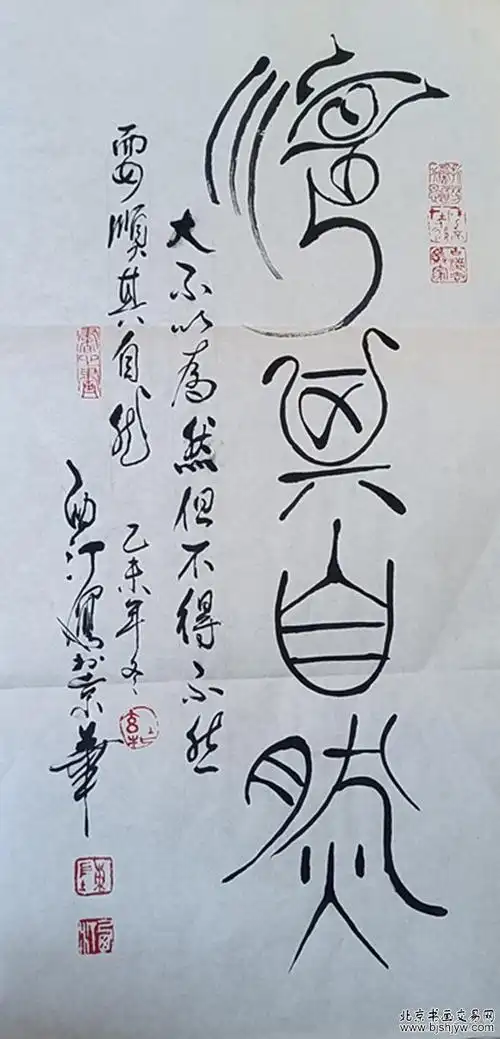 順其自然
大不以為然但不得不然
順其自然
乙未年冬
汀寫於京華
北京书画交易网
www.bjshjyw.com